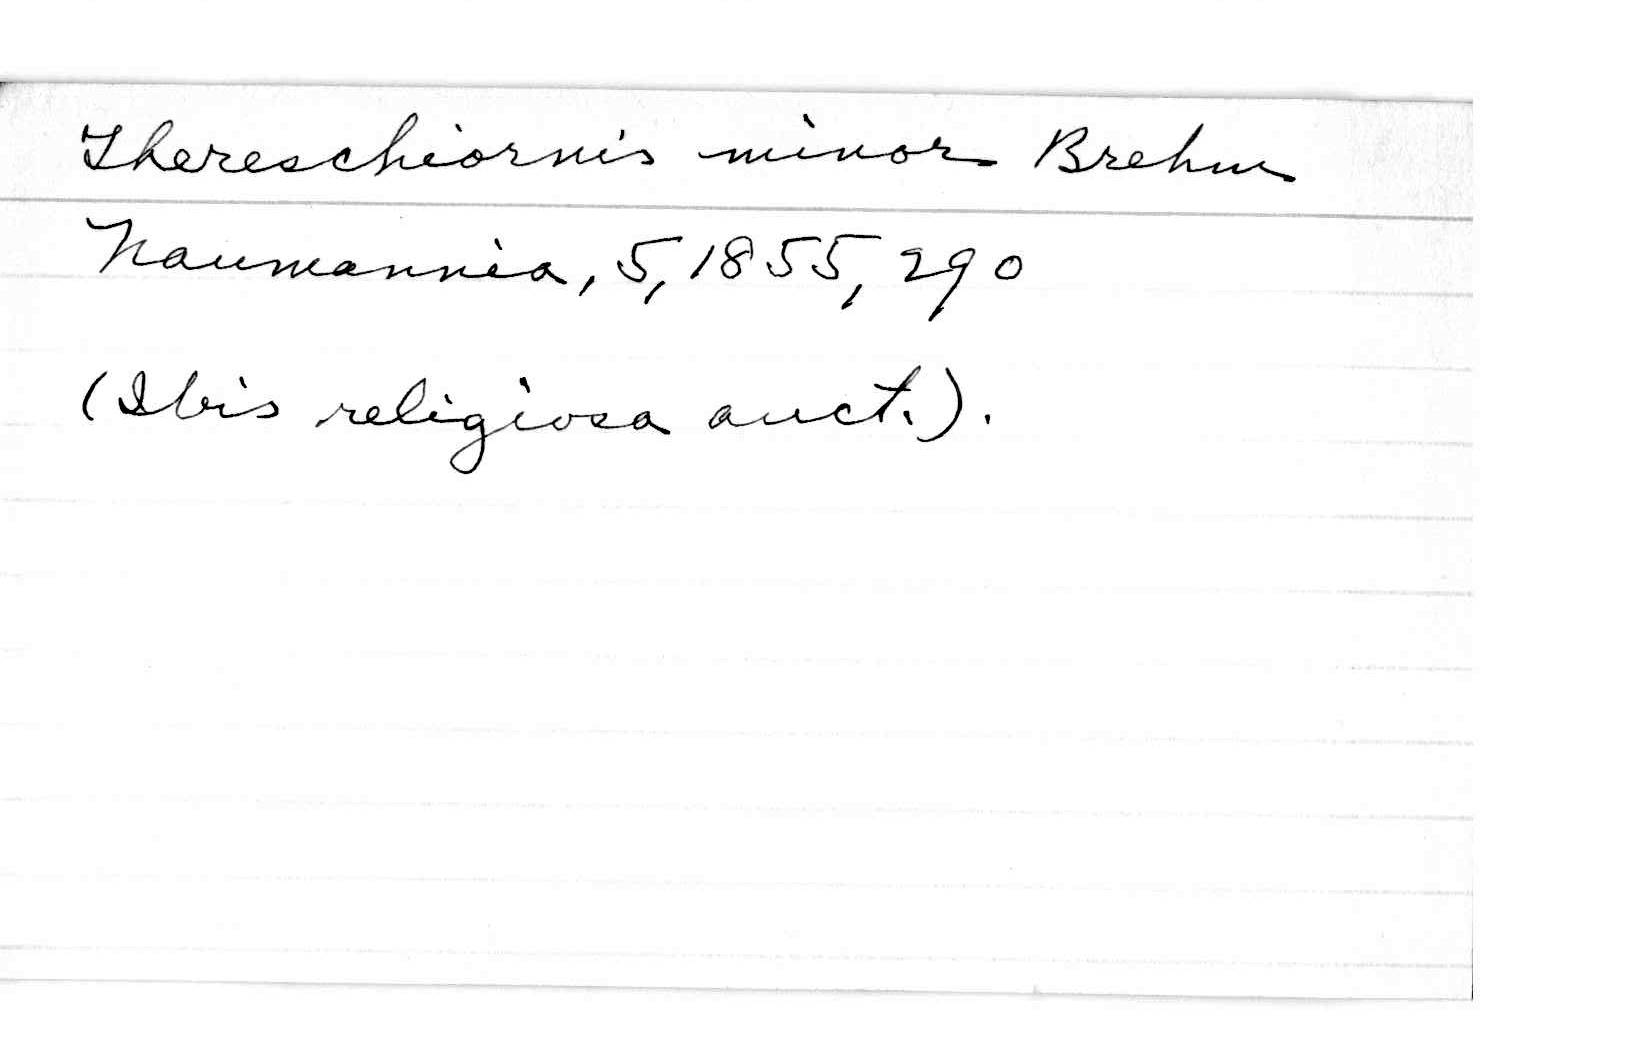 Thereschiornis minor Brehm
Naumannia, 5, 1855, 290
(Ibis religiosa auct.).